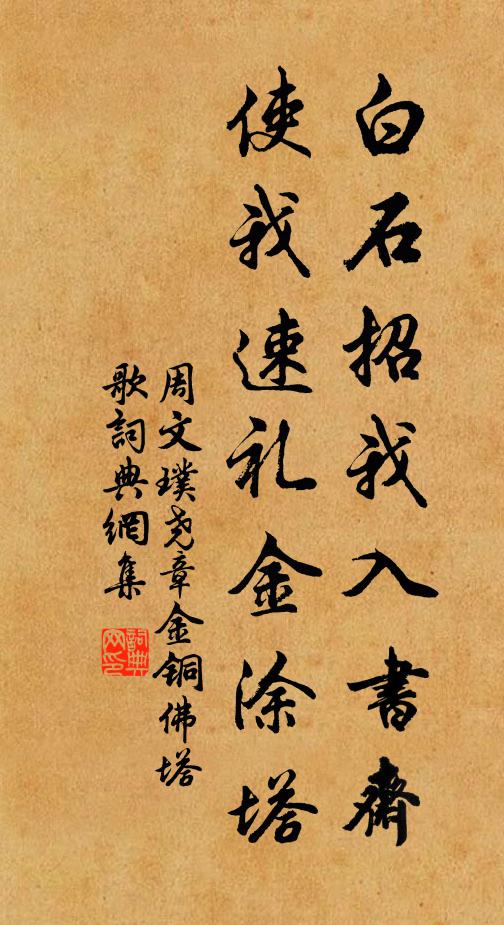 白石招我入書齋
使我速礼金涂塔
周文璞尧章金铜佛塔
歌詞典網集
詞典网印